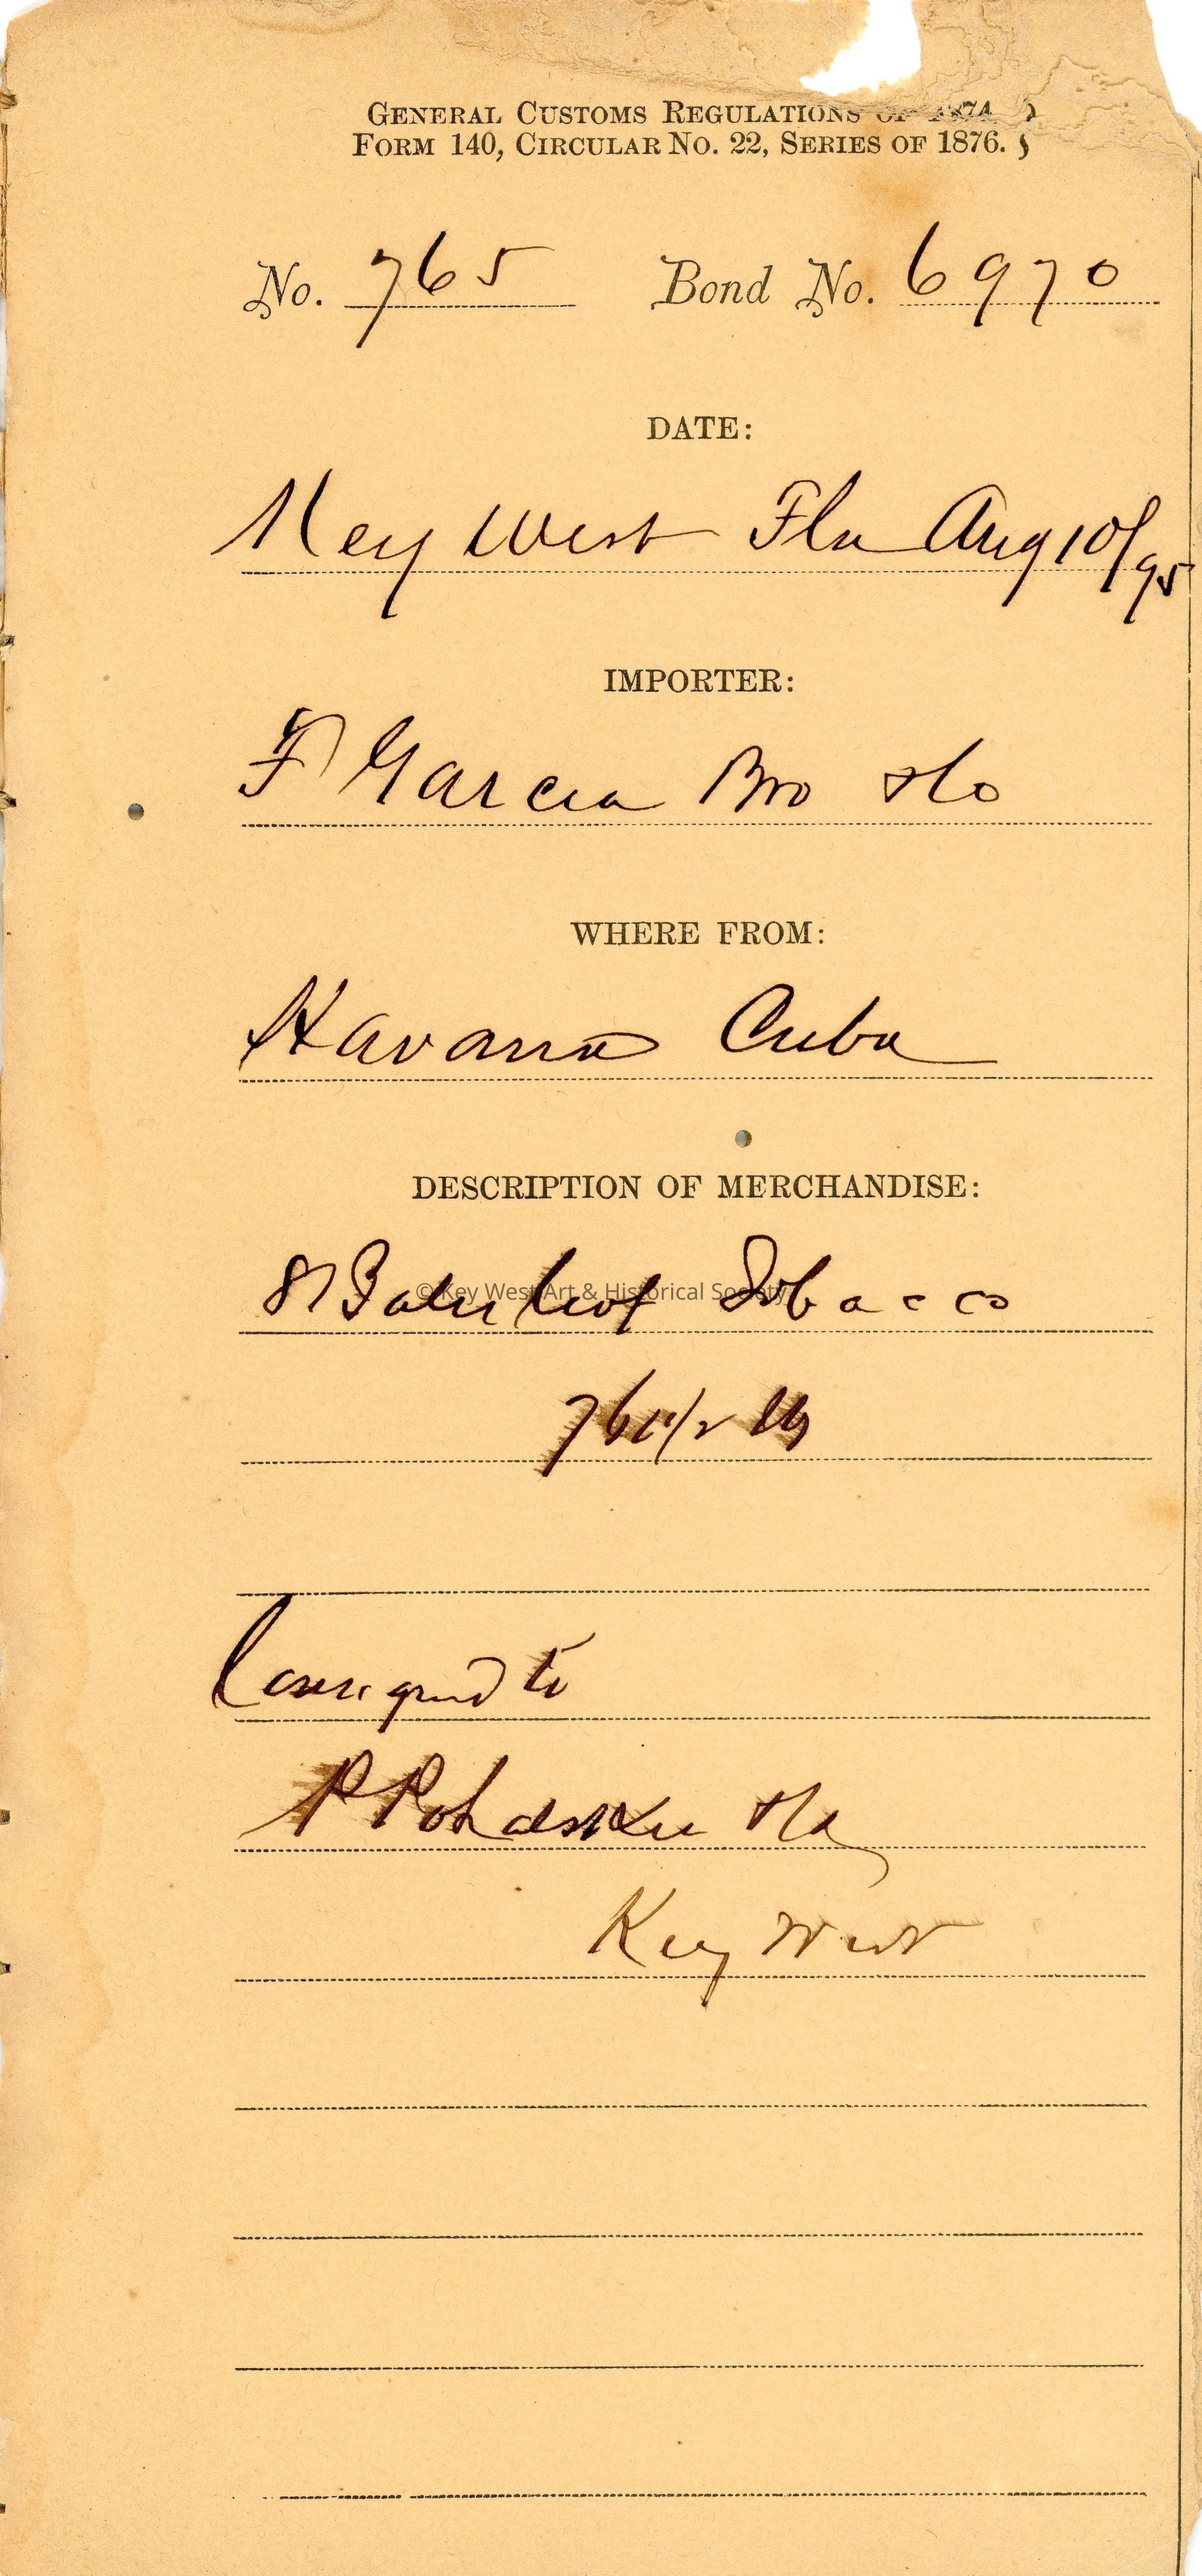 GENERAL CUSTOMS REGULATIONS OF 1874.
FORM 140, CIRCULAR NO. 22, SERIES OF 1876.
No. 765 Bond No. 6970
DATE:
Key West Fla Aug 10/95
IMPORTER:
F Garcia Bro & Co
WHERE FROM:
Havana Cuba
DESCRIPTION OF MERCHANDISE:
Bales leaf Tobacco
© Key West Art & Historical Society
761 1/2 lbs
Consigned to
P Pohalski & Co
Key West